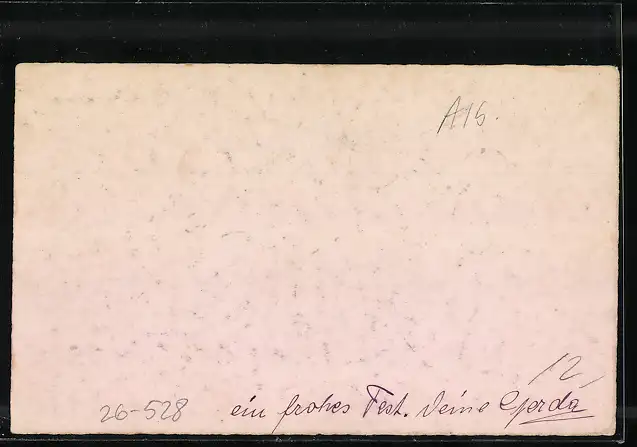 A15.
12,
26-528 ein frohes Fest. Deine Gerda